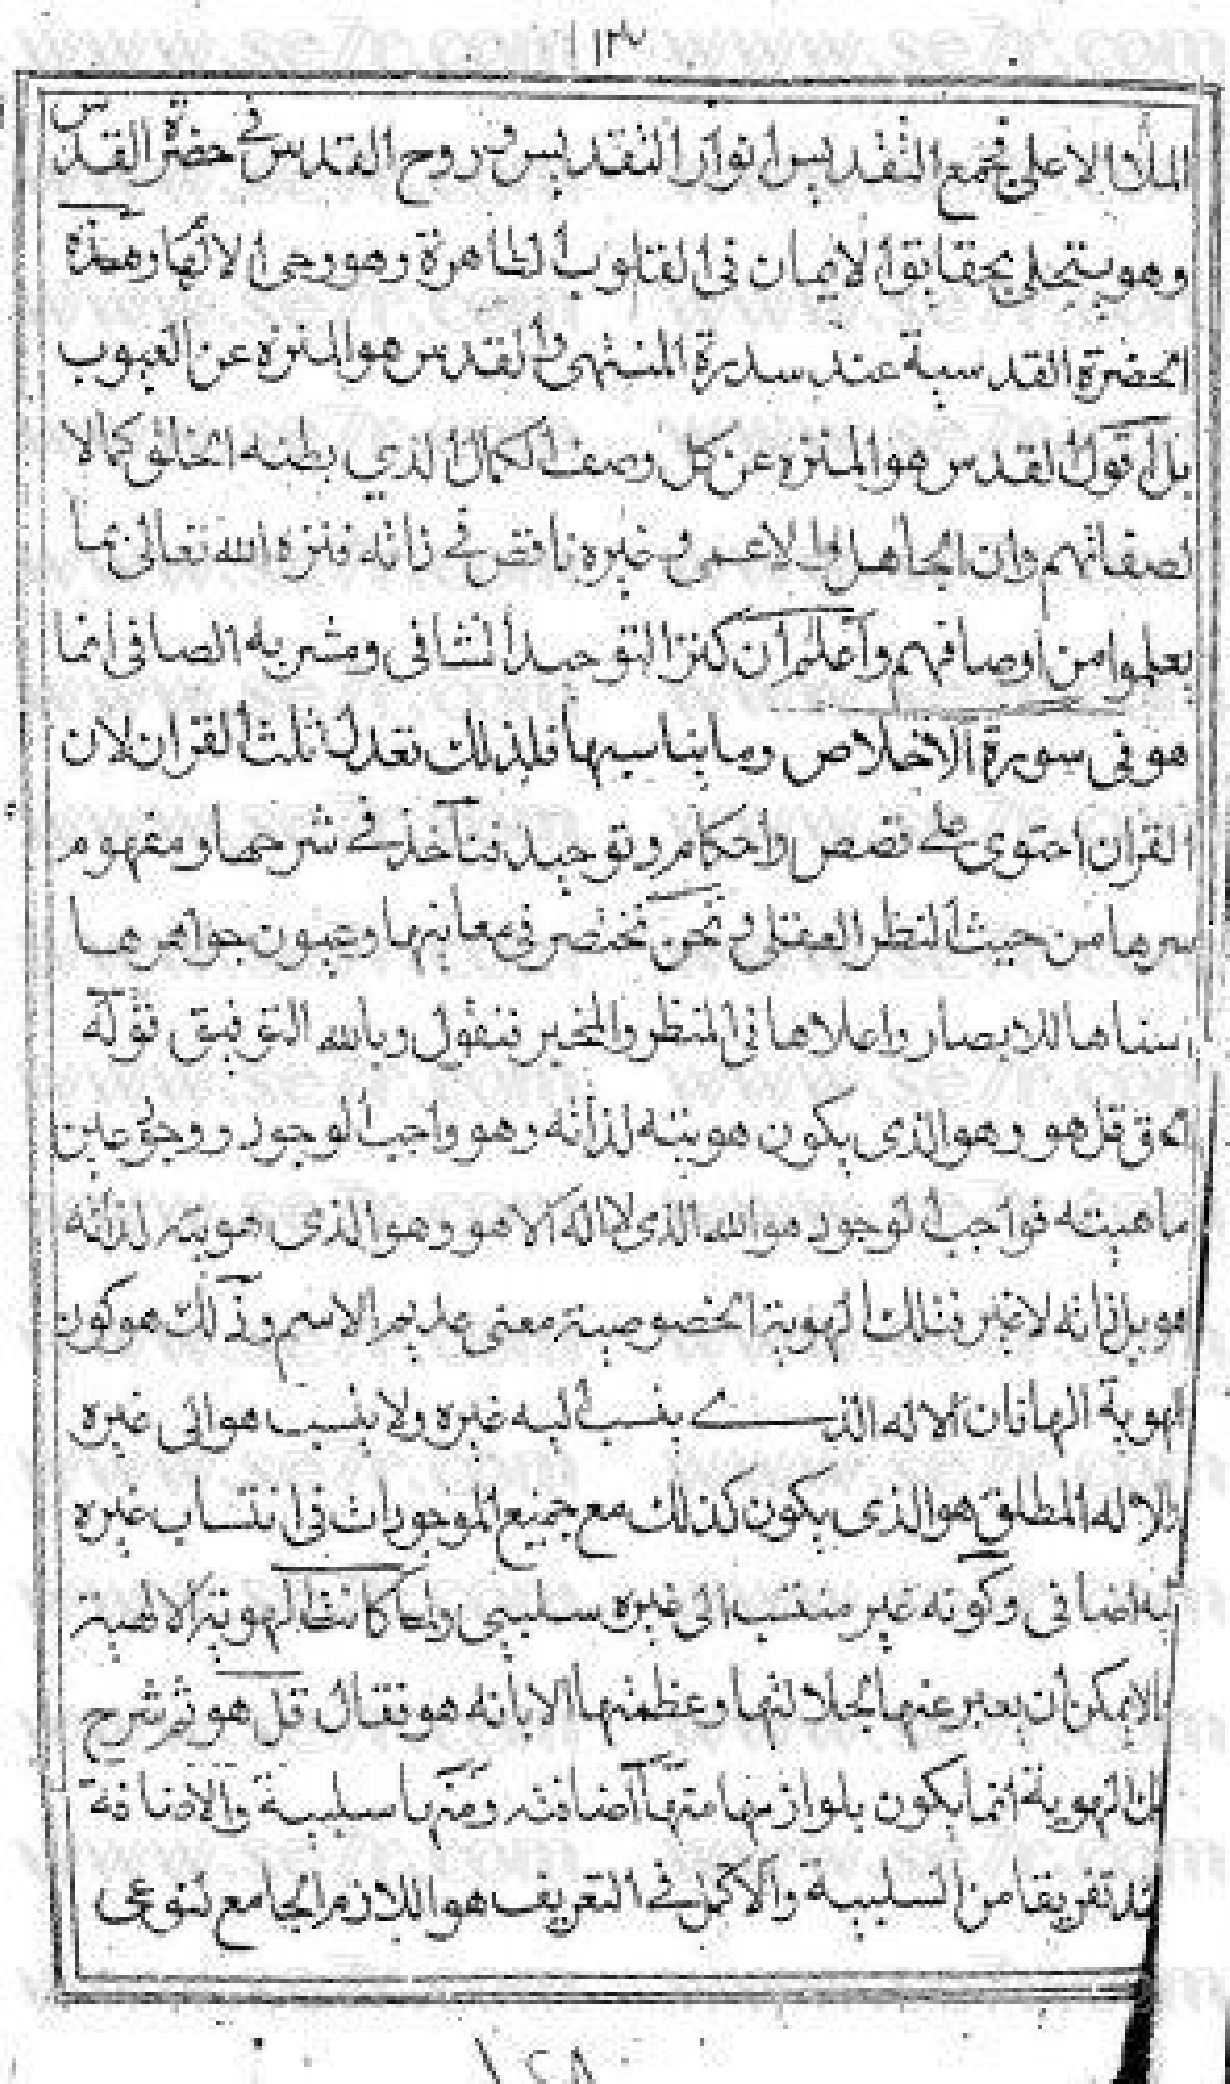 ١٣٧
الملأ الاعلى فجمع التقديس انوار التقديس وروح القدس في حضرة القدس
وهو يتجلى بحقايق الايمان في القلوب الطاهرة وهو وحى الالهام وهذه
الحضرة القدسية عند سدرة المنتهى والقدس هو المنزه عن العيوب
بل اقول القدس هو المنزه عن كل وصف الكمال الذي يظنه الخالق كمالا
لصفاتهم وان الجاهل والاعمى وغيره ناقص في ذاته فنزه الله تعالى بما
يعلموا من اوصافهم واعلم ان كنز التوحيد الشافي ومشربه الصافي انما
هو في سورة الاخلاص وما يناسبها فلذلك تعدل ثلث القران لان
القران احتوى على قصص واحكام وتوحيد فنأخذ في شرحها ومفهوم
سرها من حيث النظر العقلى ونحن نختصر في معانيها وعيون جواهرها
سناها للابصار واعلاها في المنظر والمخبر فنقول وبالله التوفيق قوله
الحق قل هو وهو الذي يكون هويته لذاته وهو واجب الوجود ووجوبه عين
ماهيته فواجب الوجود هو الله الذي لا اله الا هو وهو الذي هويته لذاته
هو بل ذاته لا غير فتلك الهوية الخصوصية معنى عديم الاسم وذلك هو كون
الهوية الها فان الاله الذي ينسب اليه غيره ولا ينسب هو الى غيره
والاله المطلق هو الذي يكون كذلك مع جميع الموجودات في انتساب غيره
له اضافى وكونه غير منتسب الى غيره سلبي ولما كانت الهوية الالهية
لا يمكن ان يعبر عنها لجلالتها وعظمتها الا بانه هو فقال قل هو ثم شرح
تلك الهوية انما يكون بلوازمها منها اضافيه ومنها سلبية والاضافة
تفريقا من السلبية والاكمل في التعريف هو اللازم الجامع لنوعى
١٢٨
www.se7r.com